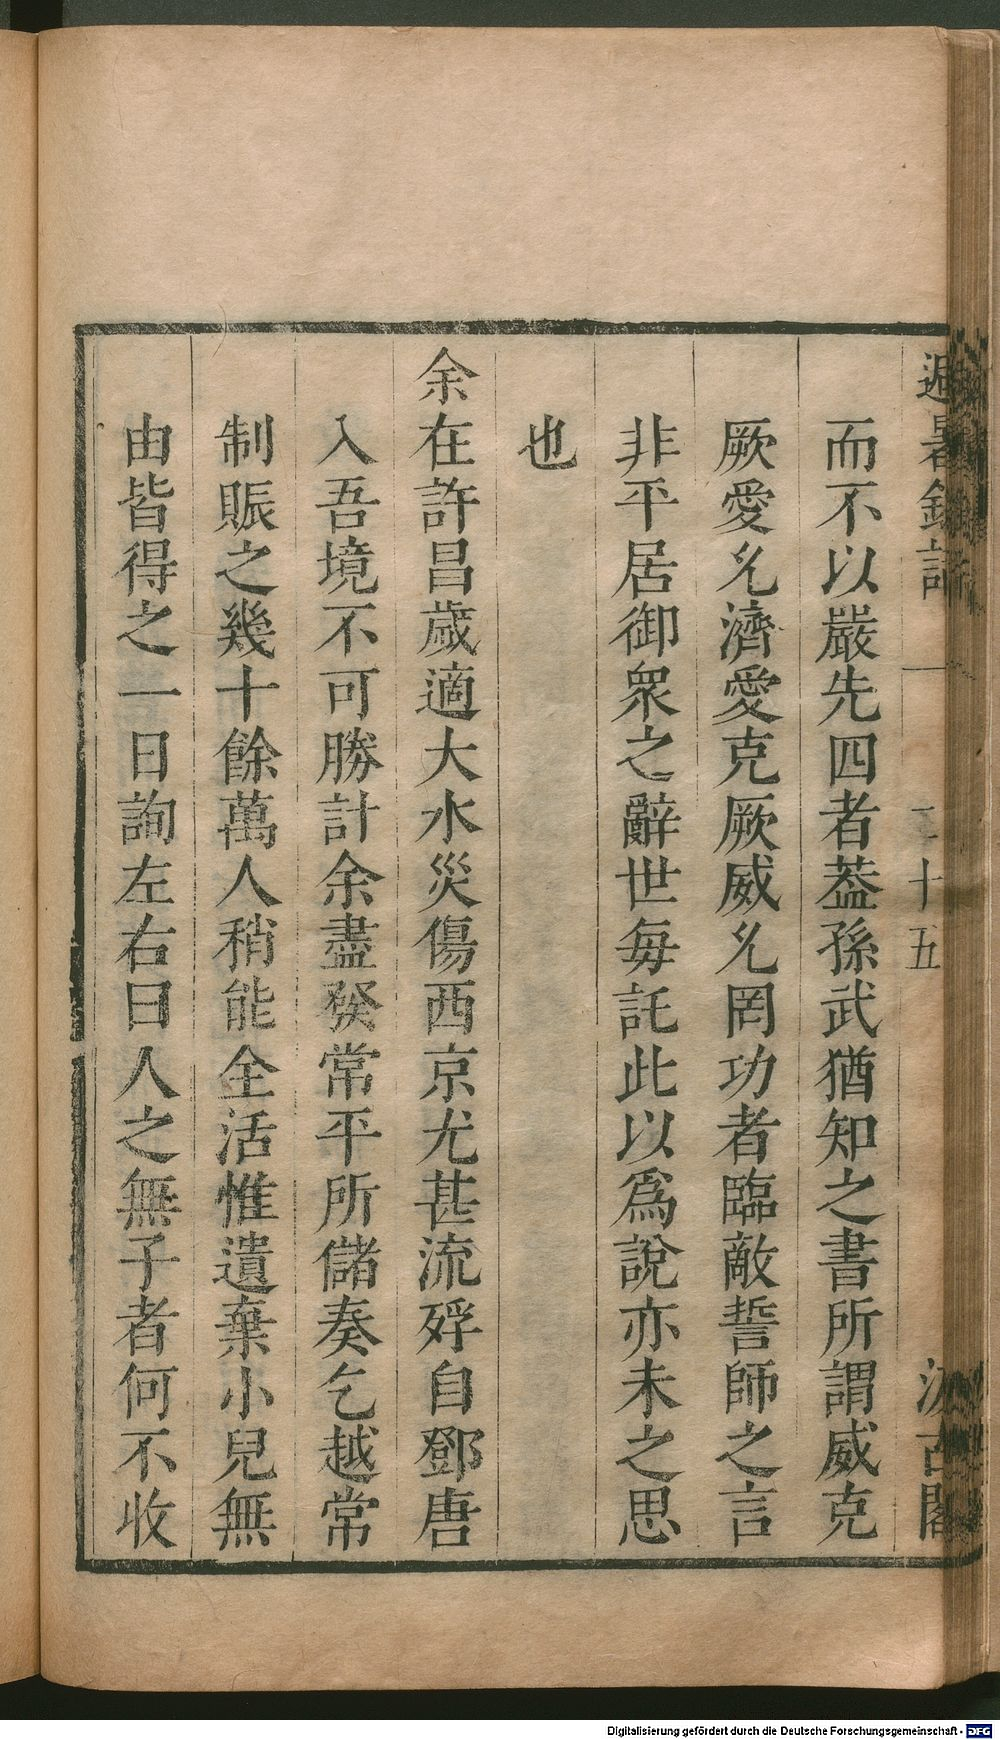 避暑錄話 一 二十五 汲古閣
而不以嚴先四者葢孫武猶知之書所謂威克
厥愛允濟愛克厥威允罔功者臨敵誓師之言
非平居御衆之辭世毎託此以爲說亦未之思
也
余在許昌歲適大水災傷西京尤甚流殍自鄧唐
入吾境不可勝計余盡發常平所儲奏乞越常
制賑之幾十餘萬人稍能全活惟遺棄小兒無
由皆得之一日詢左右曰人之無子者何不收
Digitalisierung gefördert durch die Deutsche Forschungsgemeinschaft - DFG